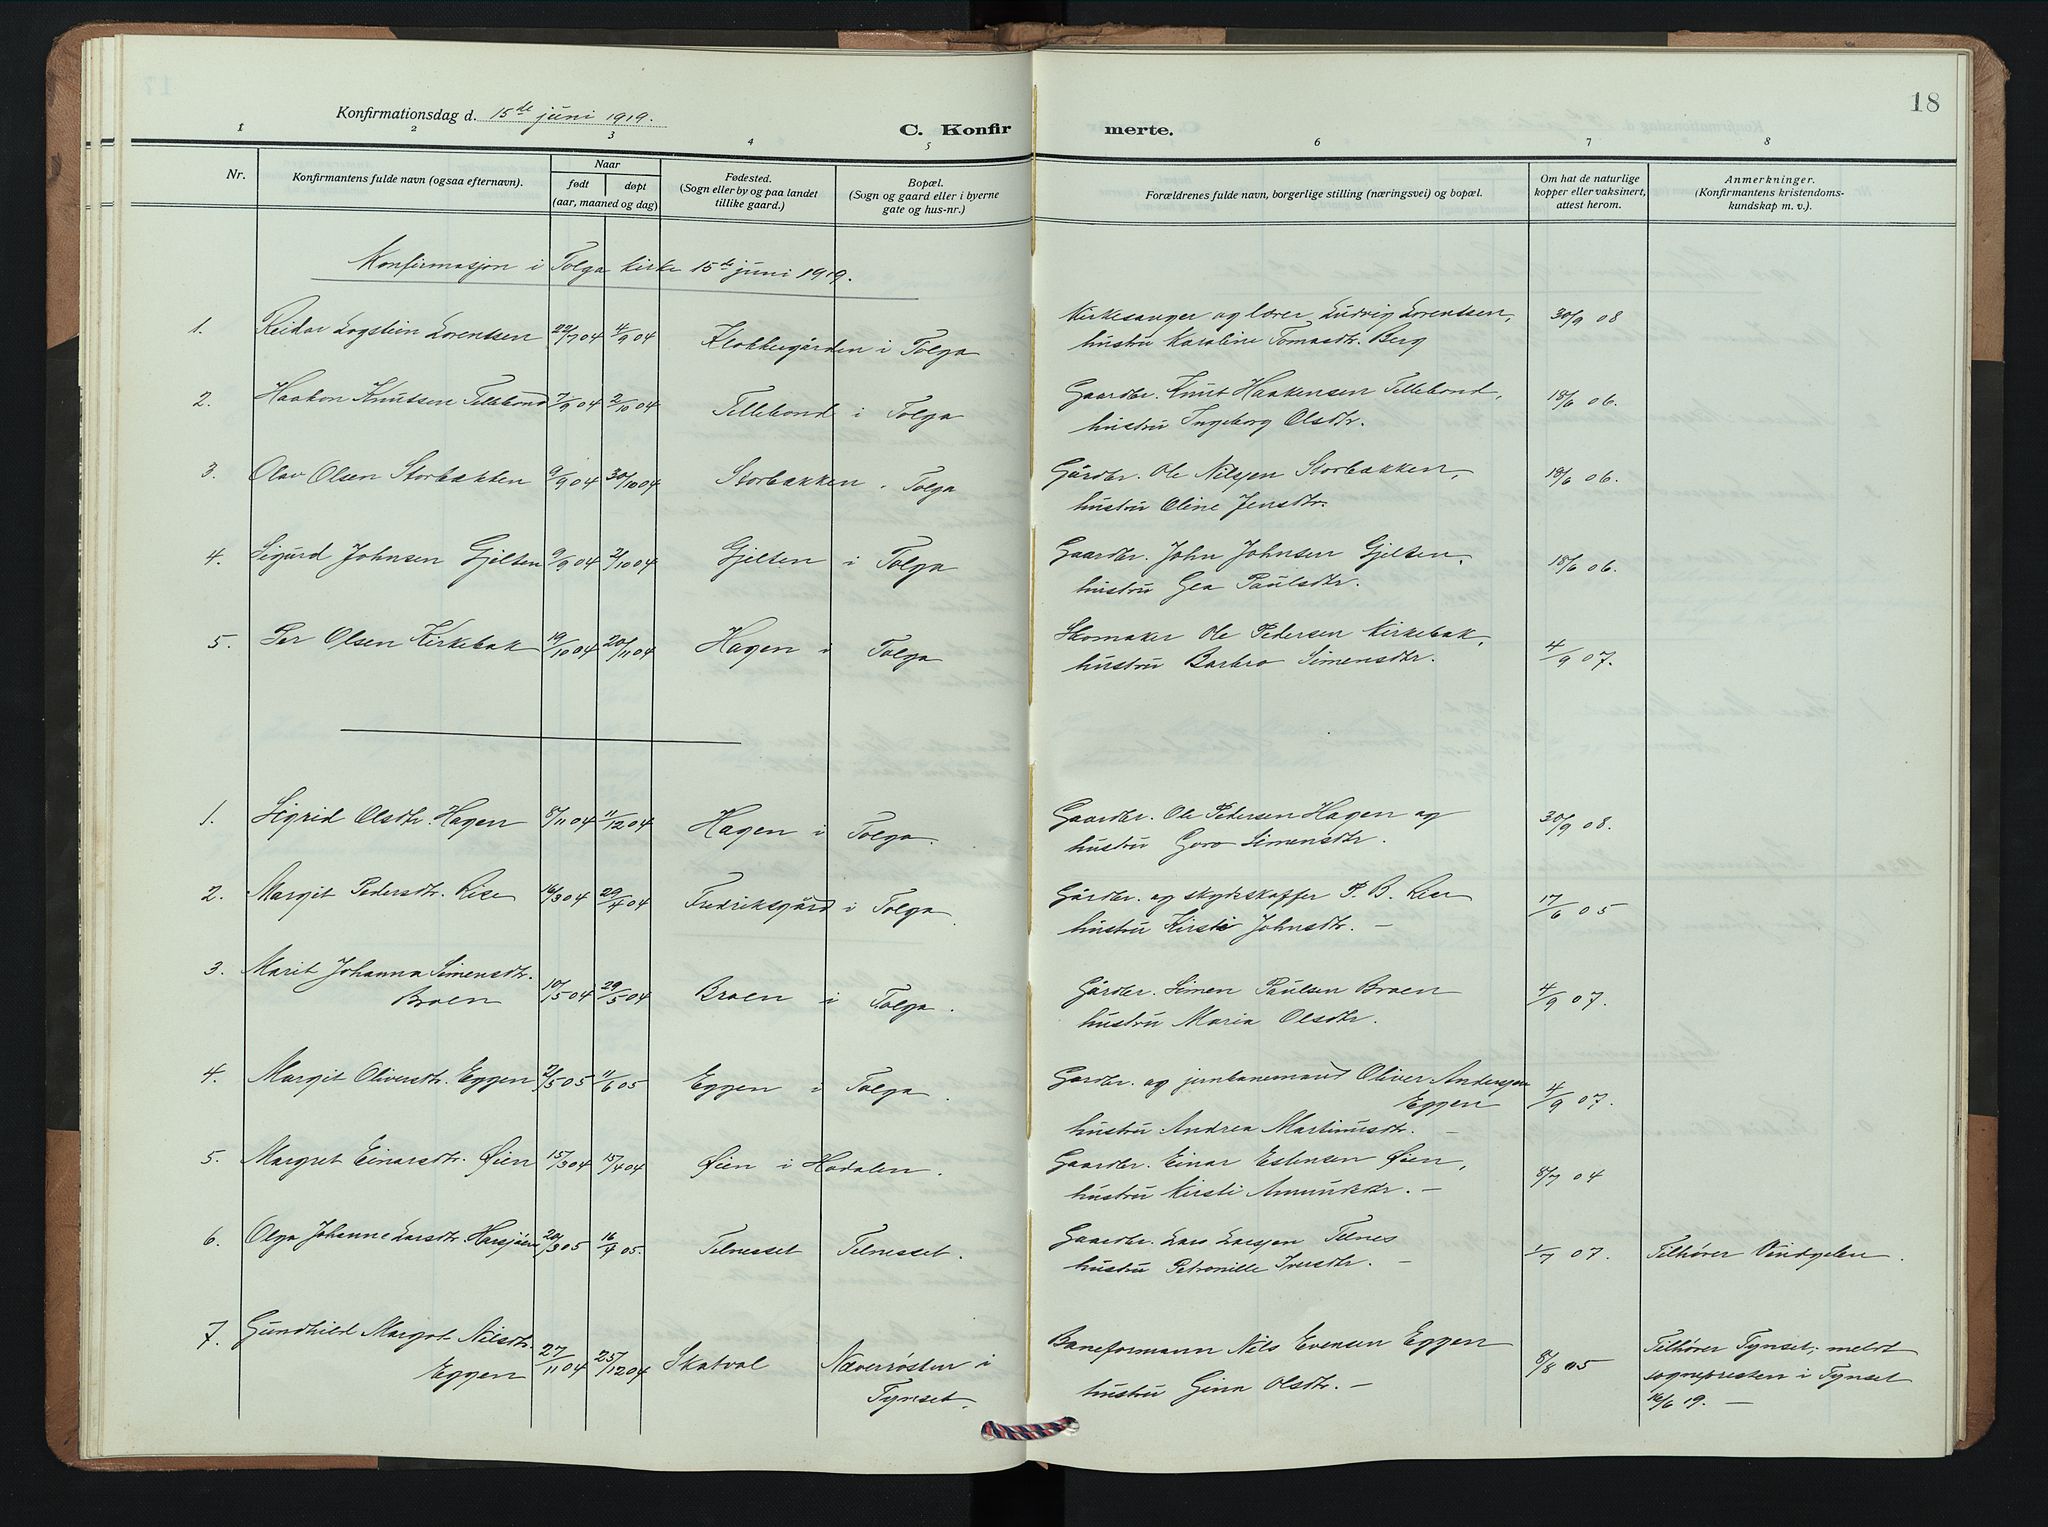 18
Konfirmationsdag d. 15de juni 1919.
C. Konfir merte.
1 2 3 4 5 6 7 8
Nr. Konfirmantens fulde navn (ogsaa efternavn). Naar født døpt (aar, maaned og dag) Fødested. (Sogn eller by og paa landet tillike gaard.) Bopæl. (Sogn og gaard eller i byerne gate og hus-nr.) Forældrenes fulde navn, borgerlige stilling (næringsvei) og bopæl. Om hat de naturlige kopper eller vaksinert, attest herom. Anmerkninger. (Konfirmantens kristendoms-kundskap m. v.).
Konfirmasjon i Tolga kirke 15de juni 1919.
1. Reidar Logstein Lorentsen 22/7 04 4/9 04 Klokkergården i Tolga Kirkesanger og lærer Ludvig Lorentsen, 30/9 08
hustru Karoline Tomasdtr. Berg
2. Haakon Knutsen Tillebond 7/9 04 2/10 04 Tellebond i Tolga Gaardbr. Knut Haakensen Tellebond, 18/6 06.
hustru Ingeborg Olsdtr.
3. Olav Olsen Storbækken 9/9 04 30/10 04 Storbækken i Tolga Gårdbr. Ole Nilsen Storbækken, 18/6 06.
hustru Oline Jensdtr.
4. Sigurd Johnsen Gjelten 9/9 04 2/10 04 Gjelten i Tolga Gaardbr. John Johnsen Gjelten, 18/6 06.
hustru Gea Paulsdtr.
5. Per Olsen Kirkebak 19/10 04 20/11 04 Hagen i Tolga Skomaker Ole Pedersen Kirkebak, 4/9 07.
hustru Barbro Simensdtr.
1. Sigrid Olsdtr. Hagen 8/11 04 11/12 04 Hagen i Tolga. Gaardbr. Ole Pedersen Hagen og 30/9 08.
hustru Goro Simensdtr.
2. Margit Pedersdtr. Rise 16/3 04 29/4 04 Fredriksgård i Tolga. Gårdbr. og skydsskaffer P. B. Rise 17/6 05
hustru Kirsti Johnsdtr. —
3. Marit Johanna Simensdtr.
Broen 10/5 04 29/5 04 Broen i Tolga. Gårdbr. Simen Paulsen Broen 4/9 07.
hustru Maria Olsdtr.
4. Margit Oliversdtr. Eggen 2/5 05 11/6 05 Eggen i Tolga. Gardbr. og jernbanemand Oliver Andersen
Eggen 4/9 07.
hustru Andrea Martinusdtr. —
5. Margret Einarsdtr. Øien 15/3 04 15/4 04 Øien i Hodalen. Gaardbr. Einar Estensen Øien, 8/7 04
hustru Kirsti Amundsdtr. —
6. Olga Johanne Larsdtr. Harsjøen 20/3 05 16/4 05. Telnesset Telnesset. Gaardbr. Lars Larsen Telnes 1/7 07. Tilhører Vindgelen.
hustru Petronille Iversdtr. —
7. Gundhild Margot Nilsdtr.
Eggen 27/11 04 25/12 04 Skatval Næverrøsten i Tynset. Baneformann Nils Evensen Eggen 8/8 05 Tilhører Tynset; meldt
hustru Gina Olsdtr. — sognepresten i Tynset
16/6 19. —